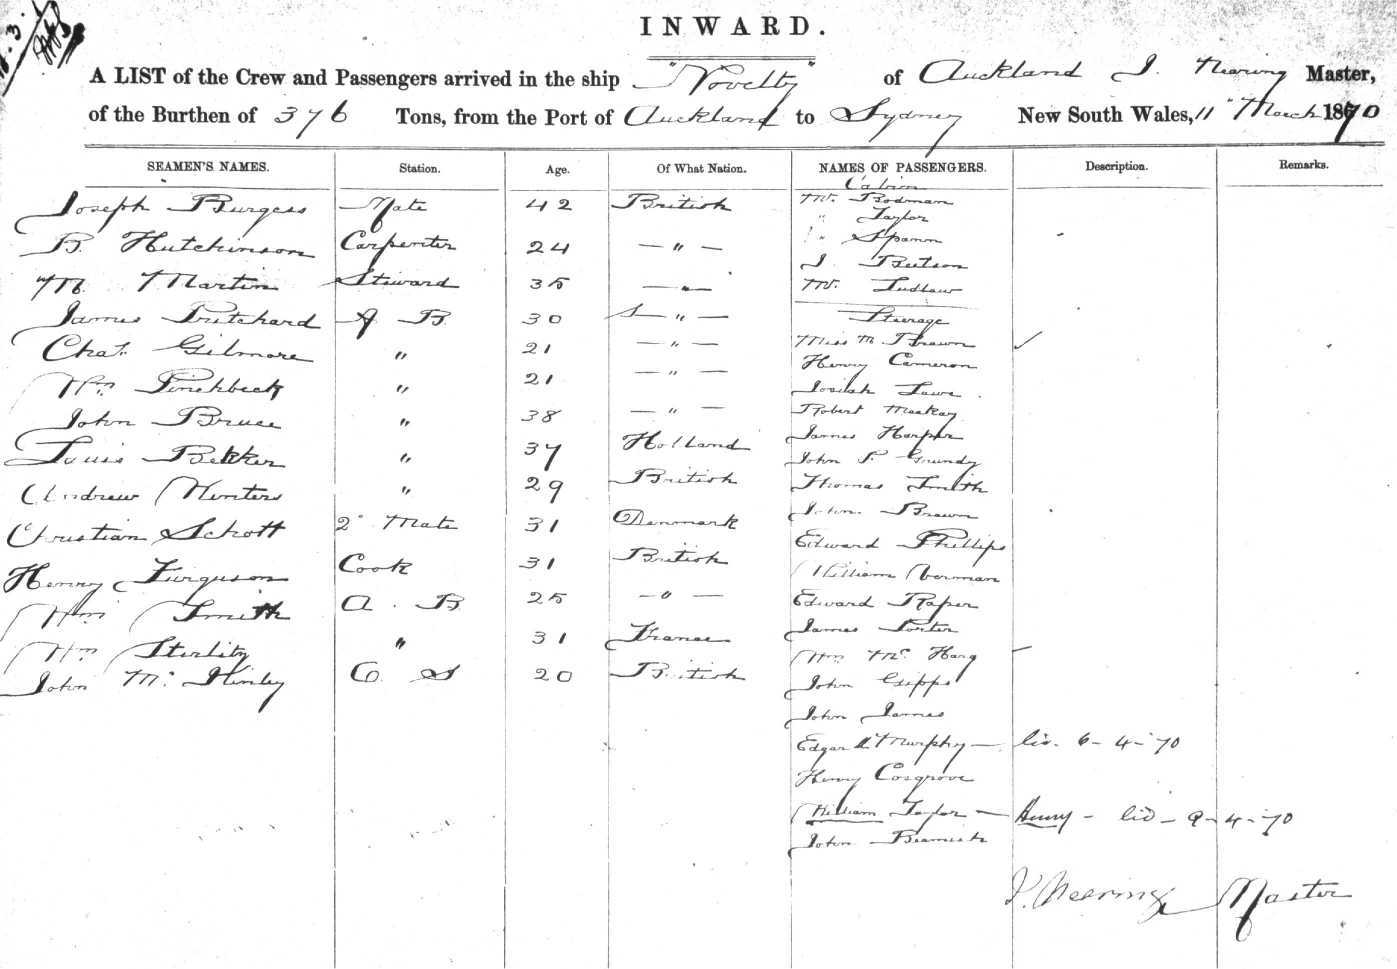 INWARD.
A LIST of the Crew and Passengers arrived in the ship "Novelty" of Auckland J. Nearing Master,
of the Burthen of 376 Tons, from the Port of Auckland to Sydney New South Wales, 11" March 1870
SEAMEN'S NAMES. Station. Age. Of What Nation. NAMES OF PASSENGERS. Description. Remarks.
Joseph Burgess Mate 42 British
B. Hutchinson Carpenter 24 — " —
Wm. Martin Steward 35 — " —
James Pritchard A B 30 — " —
Chas. Gilmore " 21 — " —
Wm Pinchbeck " 21 — " —
John Bruce " 38 — " —
Louis Bekker " 37 Holland
Andrew Winters " 29 British
Christian Schott 2" Mate 31 Denmark
Henry Furguson Cook 31 British
Wm Smith A. B 25 — " —
Wm Sterlity " 31 France
John Mc Kinley O S 20 British
Cabin
Mr. Bodman
" Taylor
" Spann
J Beetson
Mr. Ludlow
Steerage
Miss M. Brown
Henry Cameron
Josiah Lowe
Robert Mackay
James Harper
John P. Grundy
Thomas Smith
John Brown
Edward Phillips
William Norman
Edward Raper
James Porter
Wm Mc Harg
John Gipps
John James
Edgar Murphy — lic. 6-4-70
Henry Cosgrove
William Taylor — Henry - lic - 9-4-70
John Beamish
J. Nearing Master